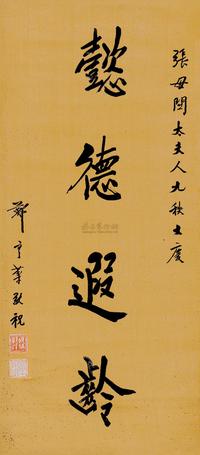 張母閻太夫人九秩大慶
懿德遐齡
鄭彥棻敬祝